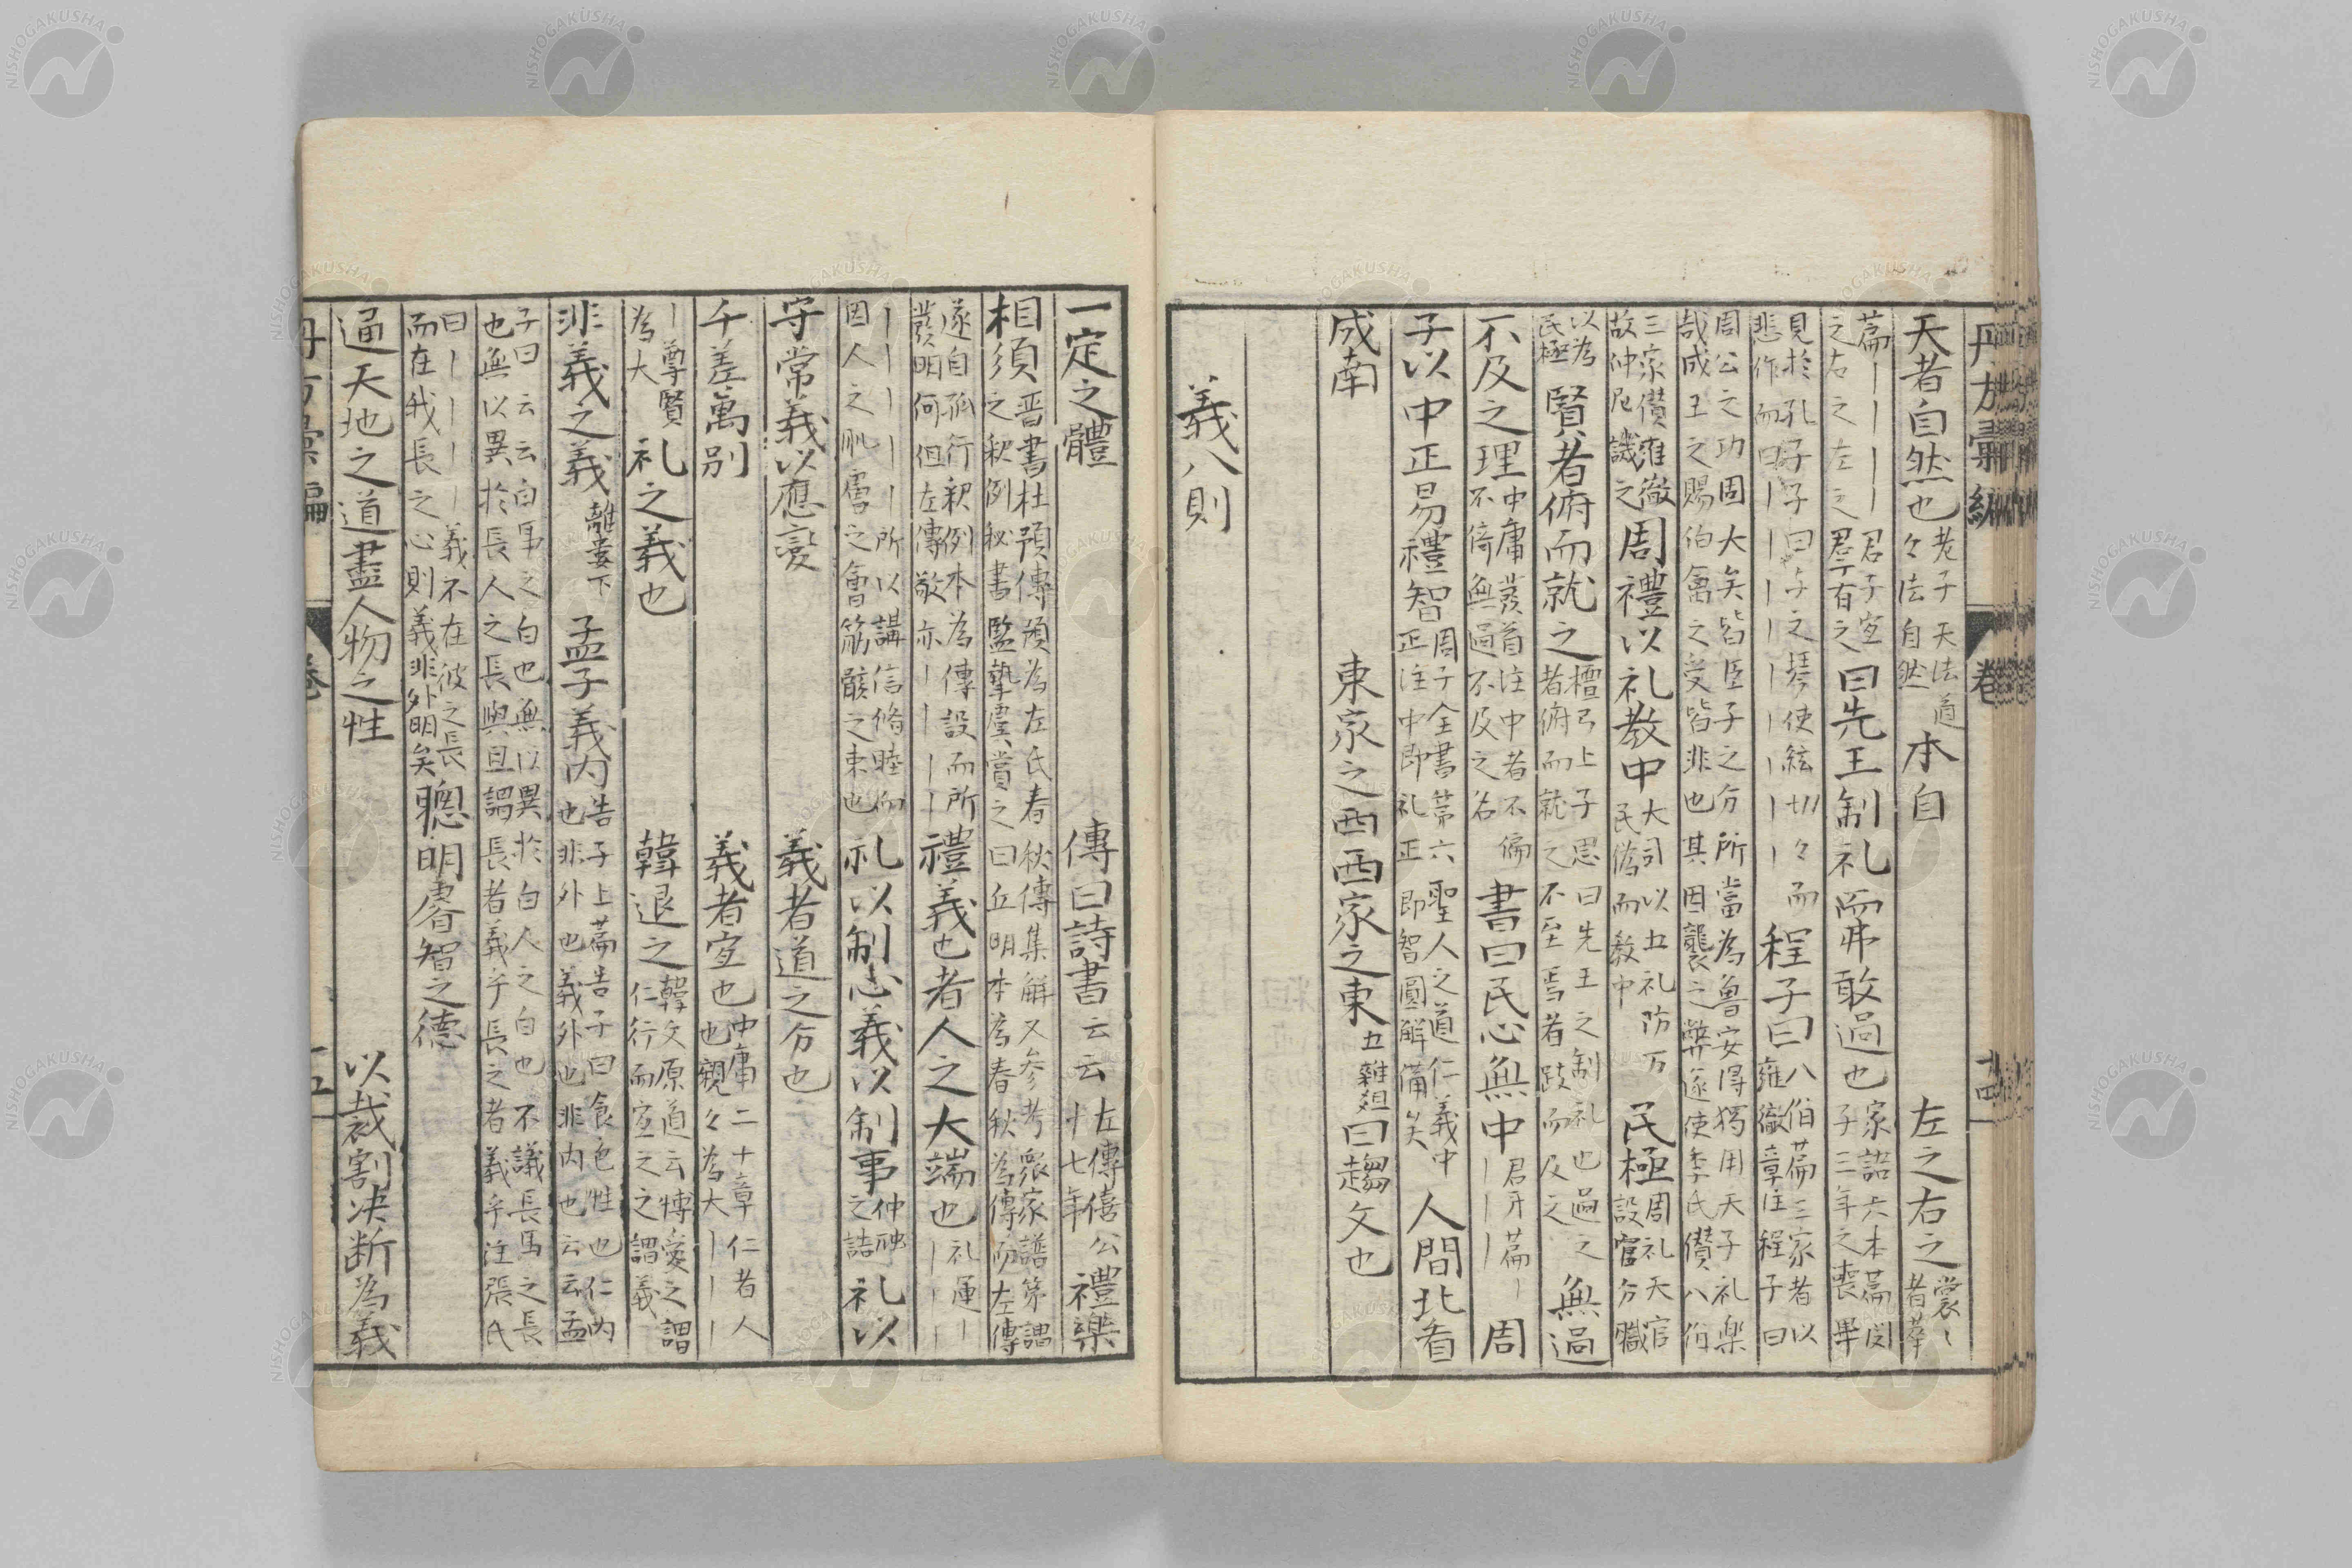 天者自然也 老子天法道 々法自然 本自 左之右之 裳〻者華
篇｜｜｜｜君子宜 之右之左之君子有之 曰先王制礼而弗敢過也 家語六本篇閔 子三年之喪畢
見於孔子子曰子之琴使絃切々而 悲作而曰｜｜｜｜｜｜ 程子曰 八佾篇三家者以 雍徹章注程子曰
周公之功固大矣皆臣子之分所當為魯安得獨用天子礼楽 哉成王之賜伯禽之受皆非也其因襲之弊遂使季氏僣八佾
三家僣雍徹 故仲尼譏之 周禮以礼教中 大司以五礼防万 民偽而教中 民極 周礼天官 設官分職
以為 民極 賢者俯而就之 檀弓上子思曰先王之制礼也過之 者俯而就之不至焉者跂而及之 無過
不及之理 中庸篇首注中者不偏 不倚無過不及之名 書曰民心無中 君牙篇｜ ｜｜｜ 周
子以中正易禮智 周子全書第六聖人之道仁義中 正注中即礼正即智圓解備矣 人間北看
成南 東家之西西家之東 五雜爼曰趨文也
義八則
丹方彙編 卷 十四
一定之體 傳曰詩書云云 左傳僖公 十七年 禮樂
相須 晋書杜預傳預為左氏春秋傳集解又参考衆家譜第謂 之秋例秘書監摯虞賞之曰丘明本為春秋為傳而左傳
遂自孤行釈例本為傳設而所 發明何但左傳敬亦｜｜｜｜ 禮義也者人之大端也 礼運｜ ｜｜｜
｜｜｜｜｜所以講信脩睦而 固人之肌膚之會筋骸之束也 礼以制心義以制事 仲虺 之誥 礼以
守常義以應變 義者道之分也
千差萬別 義者宜也 中庸二十章仁者人 也親々為大｜｜｜
｜尊賢 為大 礼之義也 韓退之 韓文原道云博愛之謂 仁行而宜之之謂義
非義之義 離婁下 孟子義内 告子上篇告子曰食色性也仁内 也非外也義外也非内也云云孟
子曰云云白馬之白也無以異於白人之白也不議長馬之長 也無以異於長人之長與且謂長者義乎長之者義乎注張氏
曰｜｜｜｜義不在彼之長 而在我長之心則義非外明矣 聰明睿智之德
通天地之道盡人物之性 以裁割决断為義
丹方彙編 卷 十五